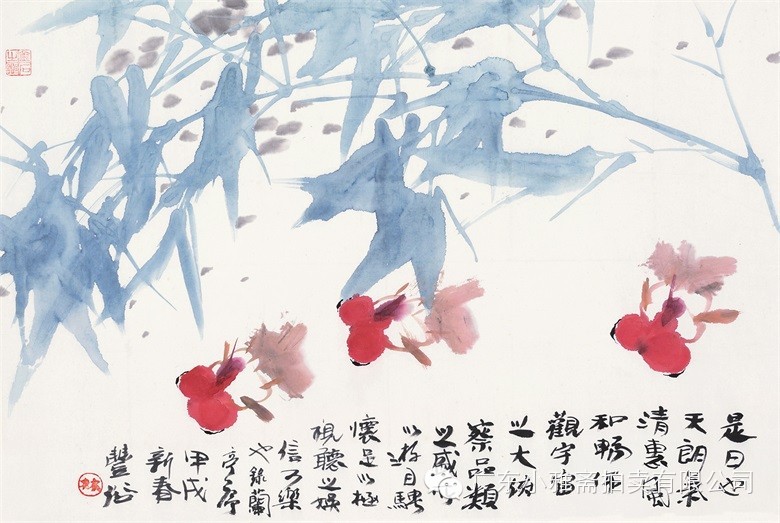 是日也
天朗氣
清惠風
和暢仰
觀宇宙
之大俯
察品類
之盛所
以游目騁
懷足以極
視聽之娛
信可樂
也錄蘭
亭序
甲戌
新春
豐
广东小雅斋拍卖有限公司